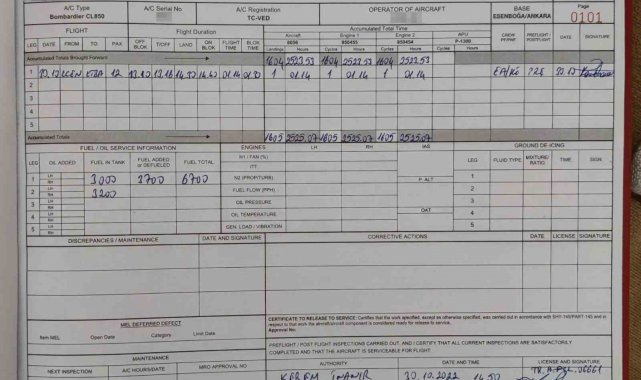 A/C Type A/C Serial No A/C Registration OPERATOR OF AIRCRAFT BASE Page
Bombardier CL850 TC-VED ESENBOĞA/ANKARA 0101
FLIGHT Flight Duration Accumulated Total Time
Aircraft Engine 1 Engine 2 APU
8056 950455 950454 P-1300
LEG DATE FROM TO PAX OFF BLOK T/OFF LAND ON BLOK FLIGHT TIME BLOK TIME Landings Hours Cycles Hours Cycles Hours Cycles Hours CREW PF/PNF PREFLIGHT/ POSTFLIGHT DATE SIGNATURE
Accumulated Totals Brought Forward 1604 2523.53 1604 2523.53 1604 2523.53
1 12 13.10 13.16 14.30 14.40 01.14 01.30 1 01.14 1 01.14 1 01.14 PRE
2
3
4
5
Accumulated Totals 1605 2525.07 1605 2525.07 1605 2525.07
FUEL / OIL SERVICE INFORMATION ENGINES LH RH IAS GROUND DE-ICING
LEG OIL ADDED FUEL IN TANK FUEL ADDED or DEFUELED FUEL TOTAL N1 / FAN (%) LEG FLUID TYPE MIXTURE/ RATIO TIME SIGN.
ITT
1 LH RH 3000 3700 6700 N2 (PROP/TURB) P. ALT 1
2 LH RH 3200 FUEL FLOW (PPH) 2
3 LH RH OIL PRESSURE 3
4 LH RH OIL TEMPERATURE OAT 4
5 LH RH GEN. LOAD / VIBRATION 5
DISCREPANCIES / MAINTENANCE DATE AND SIGNATURE CORRECTIVE ACTIONS DATE LICENSE SIGNATURE
CERTIFICATE TO RELEASE TO SERVICE: Certifies that the work specified, except as otherwise specified, was carried out in accordance with SHY-145/PART-145 and in
respect to that work the aircraft/aircraft component is considered ready for release to service.
Approval No:
MEL DEFERRED DEFECT
Item MEL Open Date Category Limit Date
PREFLIGHT / POST FLIGHT INSPECTIONS CARRIED OUT. AND I CERTIFY THAT ALL CURRENT INSPECTIONS ARE SATISFACTORILY
COMPLETED AND THAT THE AIRCRAFT IS SERVICEABLE FOR FLIGHT
MAINTENANCE AUTHORITY DATE AND TIME LICENSE AND SIGNATURE
NEXT INSPECTION A/C HOURS/DATE MRO APPROVAL NO KEREM 30.10.2022 14.50